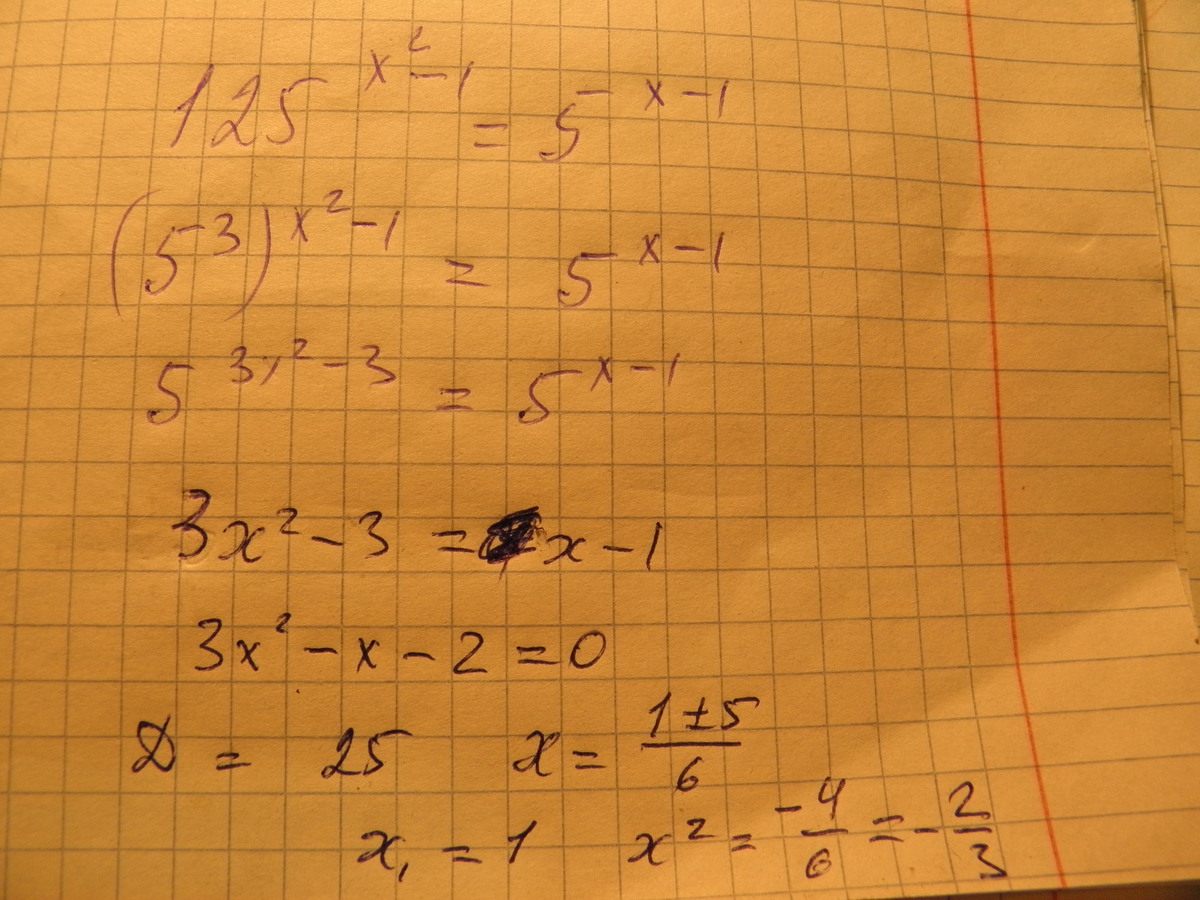 125^{x^2-1} = 5^{x-1}
(5^3)^{x^2-1} = 5^{x-1}
5^{3x^2-3} = 5^{x-1}
3x^2-3 = x-1
3x^2-x-2=0
D = 25 x = \frac{1±5}{6}
x_1 = 1 x^2 = \frac{-4}{6} = -\frac{2}{3}